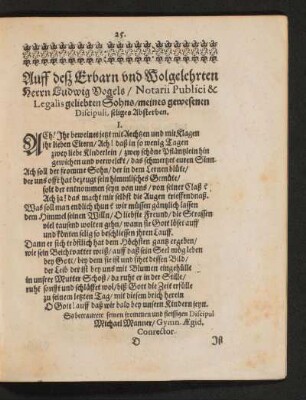 25.
Auff deß Erbarn vnd Wolgelehrten
Herrn Ludwig Vogels / Notarii Publici &
Legalis geliebten Sohns / meines gewesenen
Discipuli, seliges Absterben.
I.
ACh! Ihr beweinet jetzt mit Aechtzen und mit Klagen
ihr lieben Eltern / Ach! daß in so wenig Tagen
zwey liebe Kinderlein / zwey schöne Pfläntzlein hin
gewichen und verwelckt / das schmertzet euren Sinn.
Ach soll der fromme Sohn / der in dem Lernen blüte /
der uns offt hat bezeugt sein himmlisches Gemüte /
solt der entnommen seyn von uns / von seiner Claß?
Ach ja! das macht mir selbst die Augen trieffend naß.
Was soll man endlich thun? wir müssen gäntzlich lassen
dem Himmel seinen Willn / O liebste Freund / die Strassen
viel tausend wolten gehn / wann sie Gott löset auff
und könten selig so beschliessen ihren Lauff.
Dann er sich tröstlich hat dem Höchsten gantz ergeben /
wie sein Beichtvatter weiß / auff daß sein Seel mög leben
bey Gott / bey dem sie ist und sihet dessen Bild /
der Leib der ist bey uns mit Blumen eingehüllt
in unsrer Mutter Schoß / da ruht er in der Stille /
ruht sanfft und schläffet wol / biß Gott die Zeit erfülle
zu seinem letzten Tag / mit diesem brich herein
O Gott! auff daß wir bald bey unsern Kindern seyn.
So betraurete seinen frommen und fleissigen Discipul
Michael Manner / Gymn. Ægid.
Conrector.
D Ist